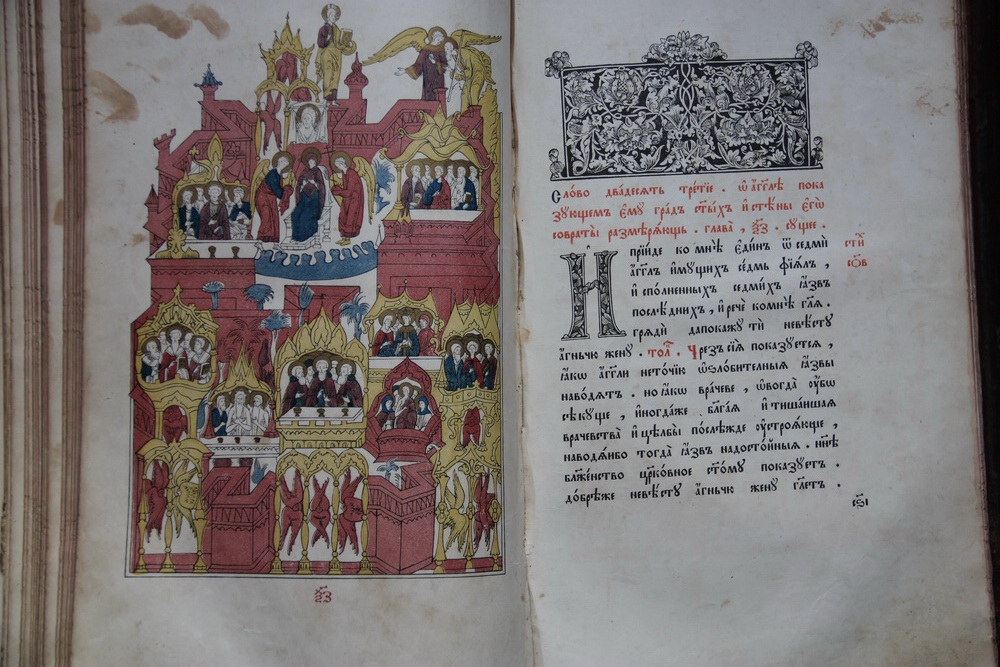 ѯ҃з
Сло́во два́десять тре́тїе . ѿ а҆́гг҃лѣ пока
зꙋ́ющемъ є҆мꙋ̀ гра́дъ ст҃ы́хъ и҆ стѣ́ны є҆гѡ̀
со врата̀ размѣря́ющь . глава̀ , ѯ҃з . сꙋ́щее .
И҆ прїи́де ко мнѣ̀ є҆ди́нъ ѿ седмѝ
а҆́гг҃лъ и҆мꙋ́щихъ се́дмь фїа́лъ ,
и҆ спо́лненныхъ седми́хъ ꙗ҆́звъ
послѣ́днихъ , и҆ речѐ ко мнѣ̀ гл҃ѧ .
грядѝ да покажꙋ́ ти невѣ́стꙋ
а҆́гньчю женꙋ̀ . то́л . Чрез̾ сїѧ̀ показꙋ́ется ,
ꙗ҆́кѡ а҆́гг҃ли не то́чїю ѡ҆ѕло́бительныѧ ꙗ҆́звы
наво́дятъ . но ꙗ҆́кѡ враче́ве , ѡ҆вогда̀ ᲂу҆́бѡ
сѣкꙋ́ще , и҆ногда́же бл҃га́ѧ и҆ тиша́йшаѧ
враче́вства и҆ цѣлбы̀ послѣ́жде ᲂу҆строѧ́юще ,
наводѧ́и бо тогда̀ ꙗ҆́звъ на досто́йныѧ . нн҃ѣ
блаже́нство цр҃ко́вное ст҃о́мꙋ показꙋ́етъ .
до́брѣ же невѣ́стꙋ а҆́гньчю женꙋ̀ гл҃етъ .